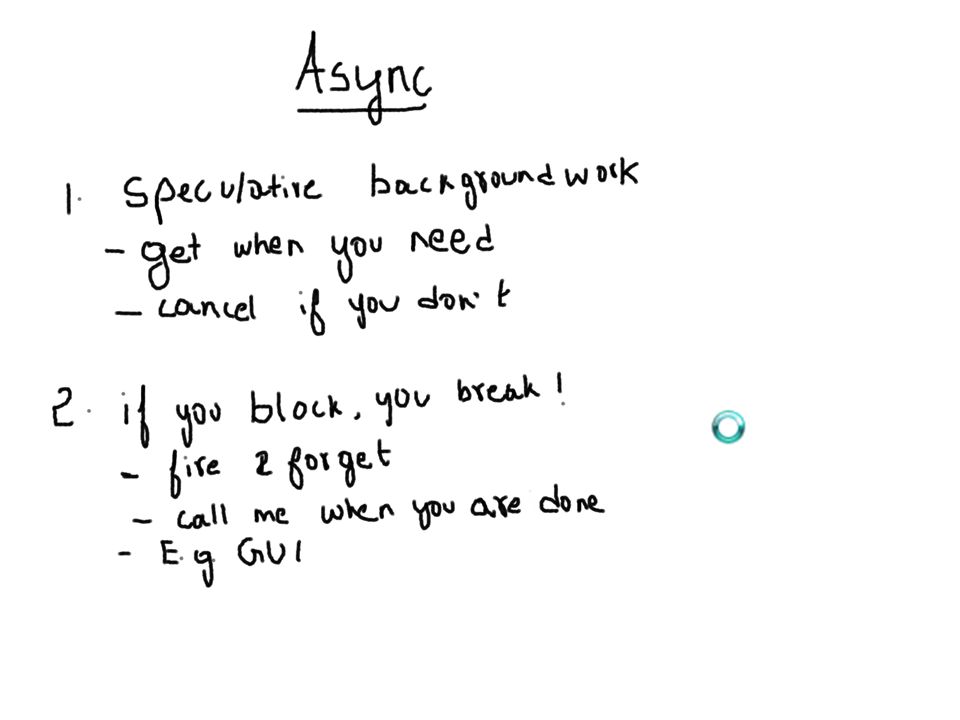 Async
1. Speculative background work
- get when you need
- cancel if you don't
2. if you block, you break!
- fire & forget
- call me when you are done
- E.g GUI